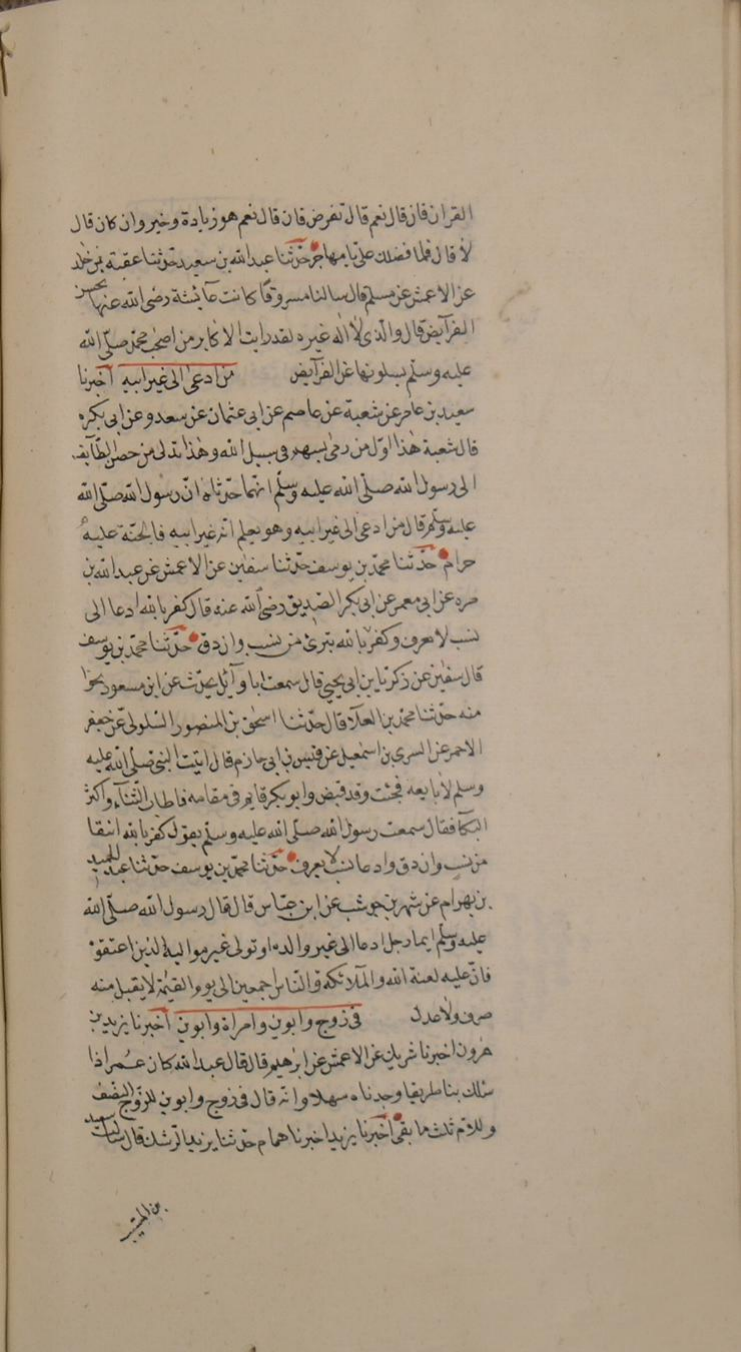 القران فان قال نعم قال تفرض فان قال نعم هو زيادة وخير وان كان قال
لا قال فما فضلك علي يا مهاجر حدثنا عبد الله بن سعيد حدثنا عقبة بن خلد
عن الاعمش عن مسلم قال سالنا مسروقا كانت عآئشة رضى الله عنها تحسن
الفرآيض قال والذى لا اله غيره لقد رايت الاكابر من اصحب محمد صلى الله
عليه وسلم يسلونها عن الفرآيض من ادعى الى غير ابيه اخبرنا
سعيد بن عامر عن شعبة عن عاصم عن ابى عثمان عن سعد وعن ابى بكره
قال شعبة هذا اول من رمى بسهم فى سبيل الله وهذا تدلى من حصن الطآيف
الى رسول الله صلى الله عليه وسلم انهما حدثاه ان رسول الله صلى الله
عليه وسلم قال من ادعى الى غير ابيه وهو يعلم انه غير ابيه فالجنة عليه
حرام حدثنا محمد بن يوسف حدثنا سفين عن الاعمش عن عبد الله بن
مره عن ابى معمر عن ابى بكر الصديق رضى الله عنه قال كفر بالله ادعا الى
نسب لا يعرف وكفر بالله تبرئ من نسب وان دق حدثنا محمد بن يوسف
قال سفين عن زكريا بن ابى يحيى قال سمعت ابا وآئل يحدث عن ابن مسعود نحوا
منه حدثنا محمد بن العلآ قال حدثنا اسحق بن المنصور السلولى عن جعفر
الاحمر عن السرى بن اسمعيل عن قيس بن ابى حازم قال اتيت النبى صلى الله عليه
وسلم لابايعه فجئت وقد قبض وابو بكر قايم فى مقامه فاطال الثنآء واكثر
البكآ فقال سمعت رسول الله صلى الله عليه وسلم يقول كفر بالله انتفا
من نسب وان دق وادعا نسب لا يعرف حدثنا محمد بن يوسف حدثنا عبد الحميد
بن بهرام عن شهر بن حوشب عن ابن عباس قال قال رسول الله صلى الله
عليه وسلم ايما رجل ادعا الى غير والده او تولى غير مواليه الذين اعتقوه
فان عليه لعنة الله والملآئكة والناس اجمعين الى يوم القيمة لا يقبل منه
صرف ولا عدل فى زوج وابوين وامراة وابوين اخبرنا يزيد بن
هرون اخبرنا شريك عن الاعمش عن ابرهيم قال قال عبد الله كان عمر اذا
سلك بنا طريقا وجدناه سهلا وانه قال فى زوج وابوين للزوج النصف
وللام ثلث ما بقى اخبرنا يزيد اخبرنا همام حدثنا يزيد الرشك قال سالت سعيد
بن المسيب